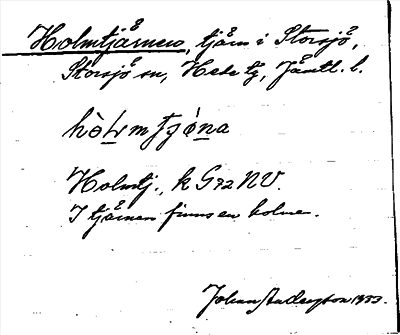 Holmtjärnen, tjärn i Storsjö,
Storsjö sn, Hede tg, Jämtl. l.
Holmtj., k G72 NV.
I tjärnen finns en holme.
Johan Andersson 1933.